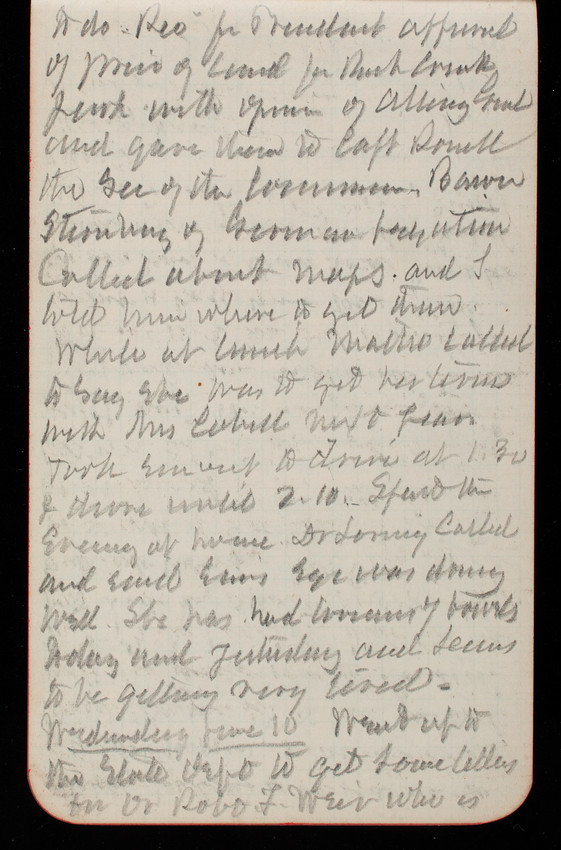 to do. Rec for President approval
of price of Land for Rock Creek
Park with opinion of Atty Genl
and gave them to Capt Rossell
the Sec of the Commission. Baron
Sternburg of German Legation
Called about maps. and I
told him where to get them.
While at lunch Mattie called
to say she was to get her
with Mrs Cabell next year
Took Emma out to drive at 1.30
& drove until 2.10. Spent the
Evening at home. Dr Loring Called
and said Ems Eye was doing
well. She has had looseness of bowels
today and yesterday and seems
to be getting very tired.
Wednesday June 10 Went up to
the State Dept to get some letters
for Dr Robt F. Weir who is